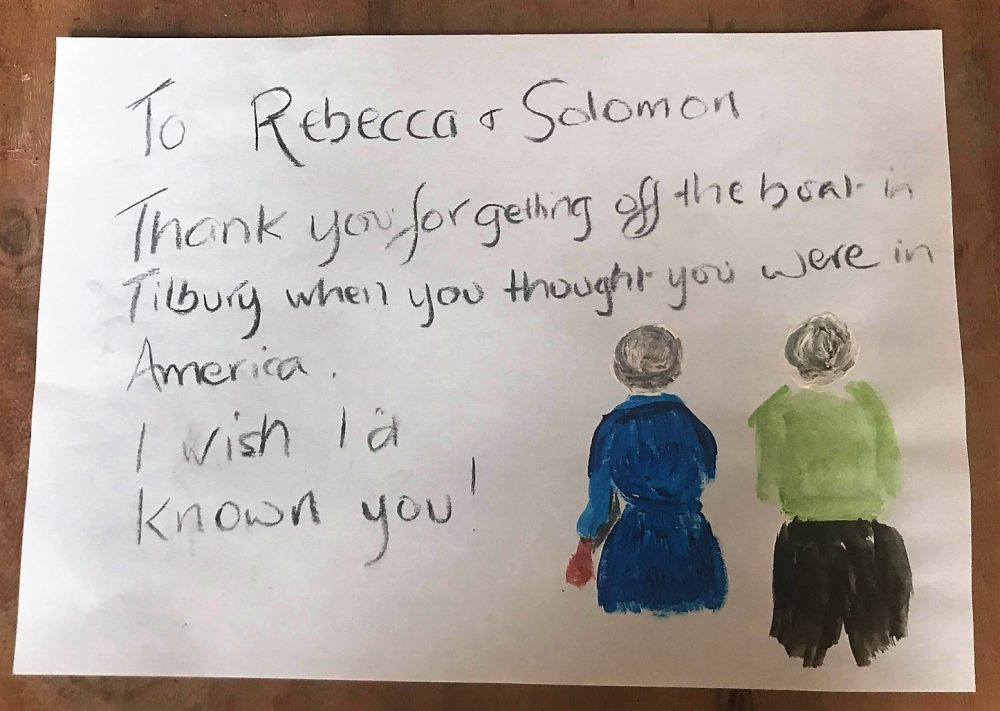 To Rebecca & Solomon
Thank you for getting off the boat in
Tilbury when you thought you were in
America.
I wish I'd
known you!